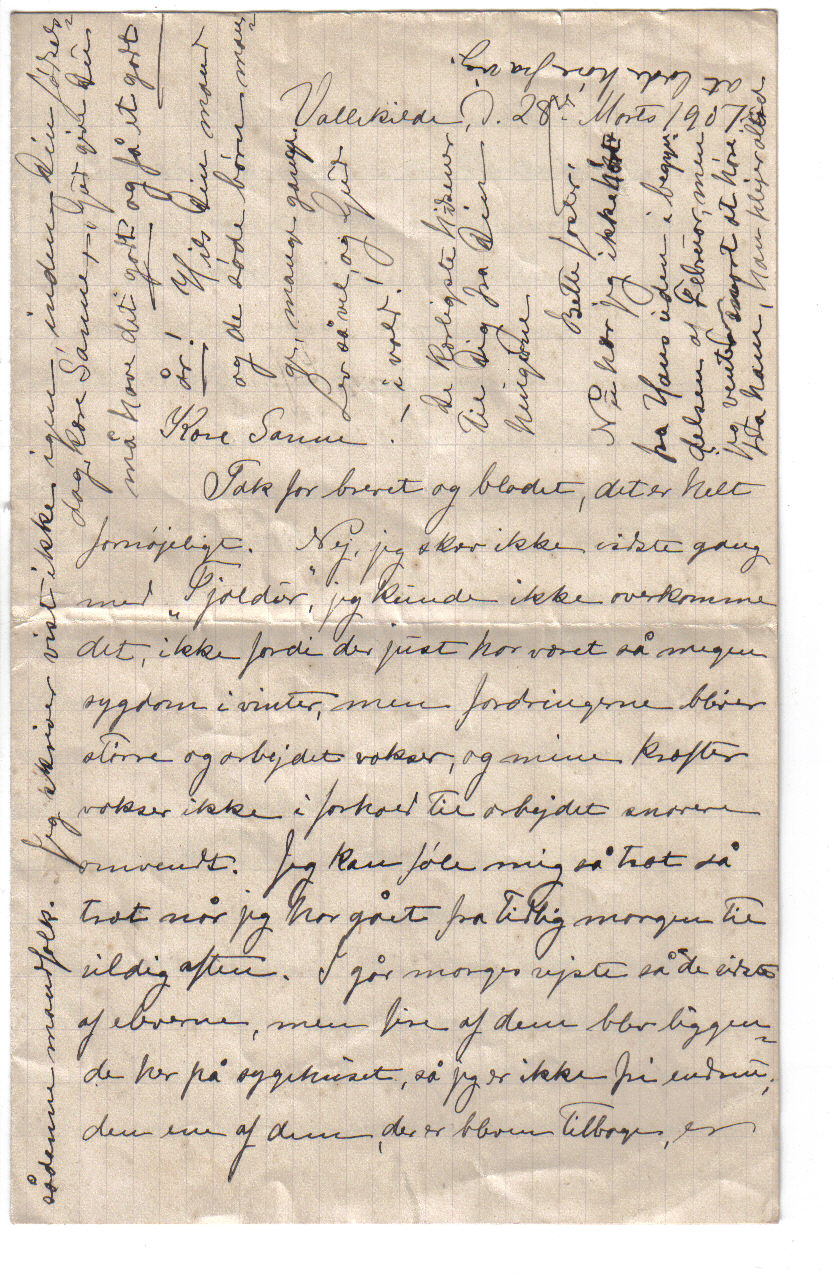 Vallekilde, d. 28de Marts 1907.
Kære Sanne!
Tak for brevet og bladet, det er helt
fornøjeligt. Nej, jeg skrev ikke sidste gang
med "Fjoldur", jeg kunde ikke overkomme
det, ikke fordi der just har været så megen
sygdom i vinter, men fordringerne bliver
større og arbejdet vokser, og mine kræfter
vokser ikke i forhold til arbejdet snarere
omvendt. Jeg kan føle mig så træt så
træt når jeg har gået fra tidlig morgen til
sildig aften. I går morges rejste så de sidste
af eleverne, men fire af dem blev liggen=
de her på sygehuset, så jeg er ikke fri endnu,
den ene af dem, der er bleven tilbage, er
sådenne mandfolk. Jeg skriver vist ikke igen, inden din fødsels=
dag, kære Sanne, Gud give Du
må have det godt og få et godt
år! Hils Din mand
og de søde børn man=
ge, mange gange.
Lev så vel, og Gud
i vold!
De kærligste hilsener
til Dig fra Din
hengivne
Bette faster.
Nu har jeg ikke hørt
fra Hans siden i begyn=
delsen af Februar, men
jeg venter snart at høre
fra ham, han plejer altid
at lade høre fra sig.